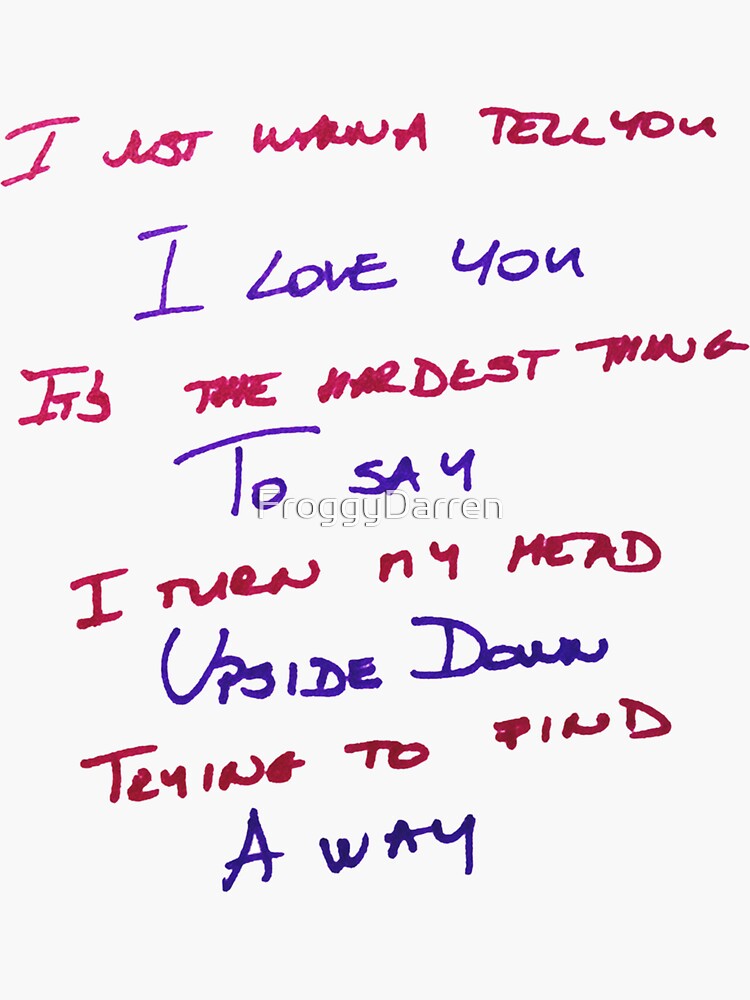 I JUST WANNA TELL YOU
I LOVE YOU
IT'S THE HARDEST THING
TO SAY
FroggyDarren
I TURN MY HEAD
UPSIDE DOWN
TRYING TO FIND
A WAY